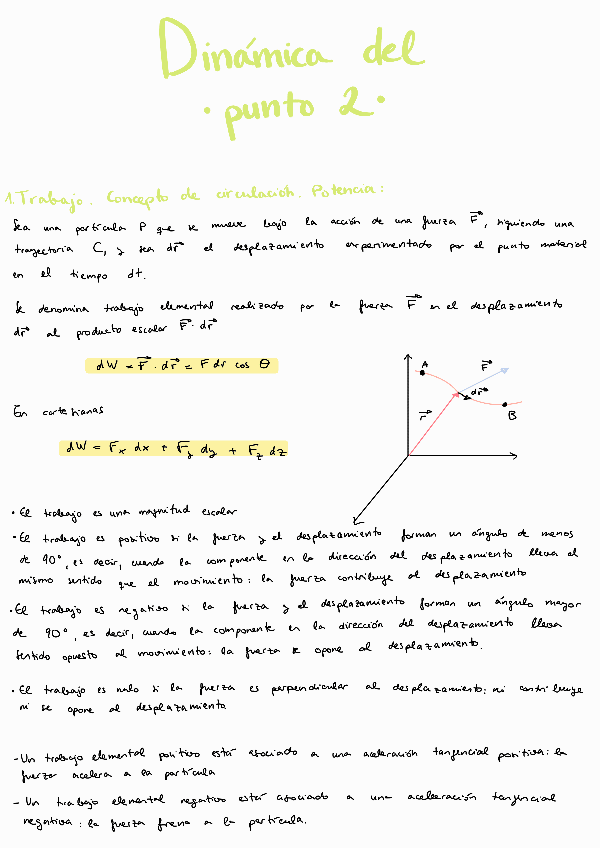 Dinámica del
· punto 2 ·
1. Trabajo. Concepto de circulación. Potencia:
Sea una partícula P que se mueve bajo la acción de una fuerza F⃗, siguiendo una
trayectoria C, y sea dr⃗ el desplazamiento experimentado por el punto material
en el tiempo dt.
Se denomina trabajo elemental realizado por la fuerza F⃗ en el desplazamiento
dr⃗ al producto escalar F⃗ · dr⃗
dW = F⃗ · dr⃗ = F dr cos θ
En cartesianas
dW = Fx dx + Fy dy + Fz dz
A
F⃗
dr⃗
r⃗
B
· El trabajo es una magnitud escalar
· El trabajo es positivo si la fuerza y el desplazamiento forman un ángulo de menos
de 90°, es decir, cuando la componente en la dirección del desplazamiento lleva el
mismo sentido que el movimiento: la fuerza contribuye al desplazamiento
· El trabajo es negativo si la fuerza y el desplazamiento forman un ángulo mayor
de 90°, es decir, cuando la componente en la dirección del desplazamiento lleva
sentido opuesto al movimiento: la fuerza se opone al desplazamiento.
· El trabajo es nulo si la fuerza es perpendicular al desplazamiento: ni contribuye
ni se opone al desplazamiento
- Un trabajo elemental positivo está asociado a una aceleración tangencial positiva: la
fuerza acelera a la partícula
- Un trabajo elemental negativo está asociado a una aceleración tangencial
negativa: la fuerza frena a la partícula.